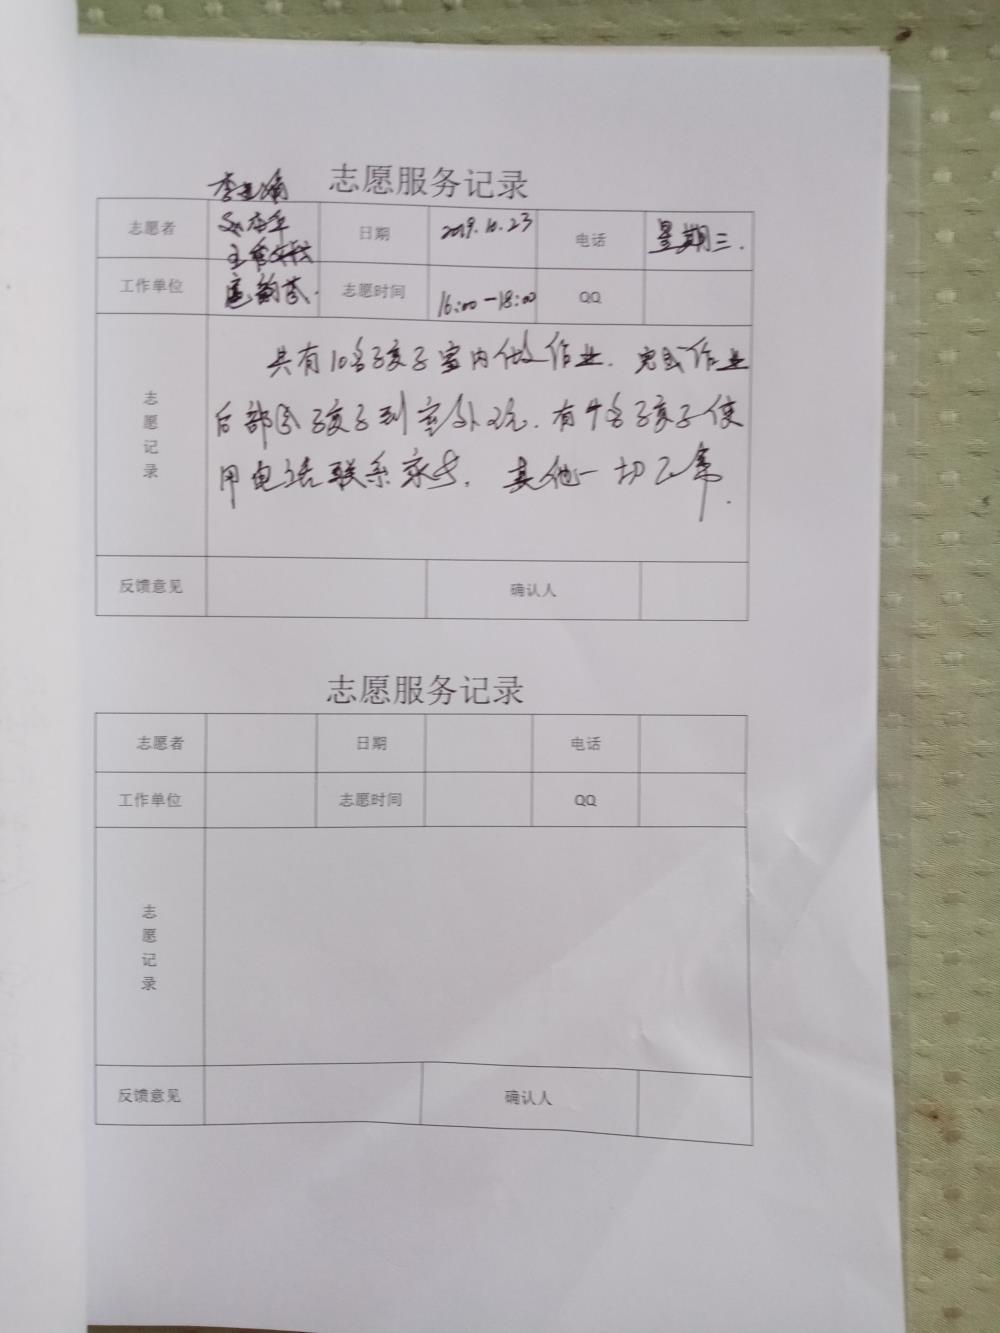 志愿服务记录
志愿者 日期 2019.10.23 电话 星期三.
工作单位 志愿时间 16:00—18:00 QQ
共有10名孩子室内做作业. 完成作业
后部分孩子到室外玩. 有4名孩子使
用电话联系家长. 其他一切正常.
志愿记录
反馈意见 确认人
志愿服务记录
志愿者 日期 电话
工作单位 志愿时间 QQ
志愿记录
反馈意见 确认人